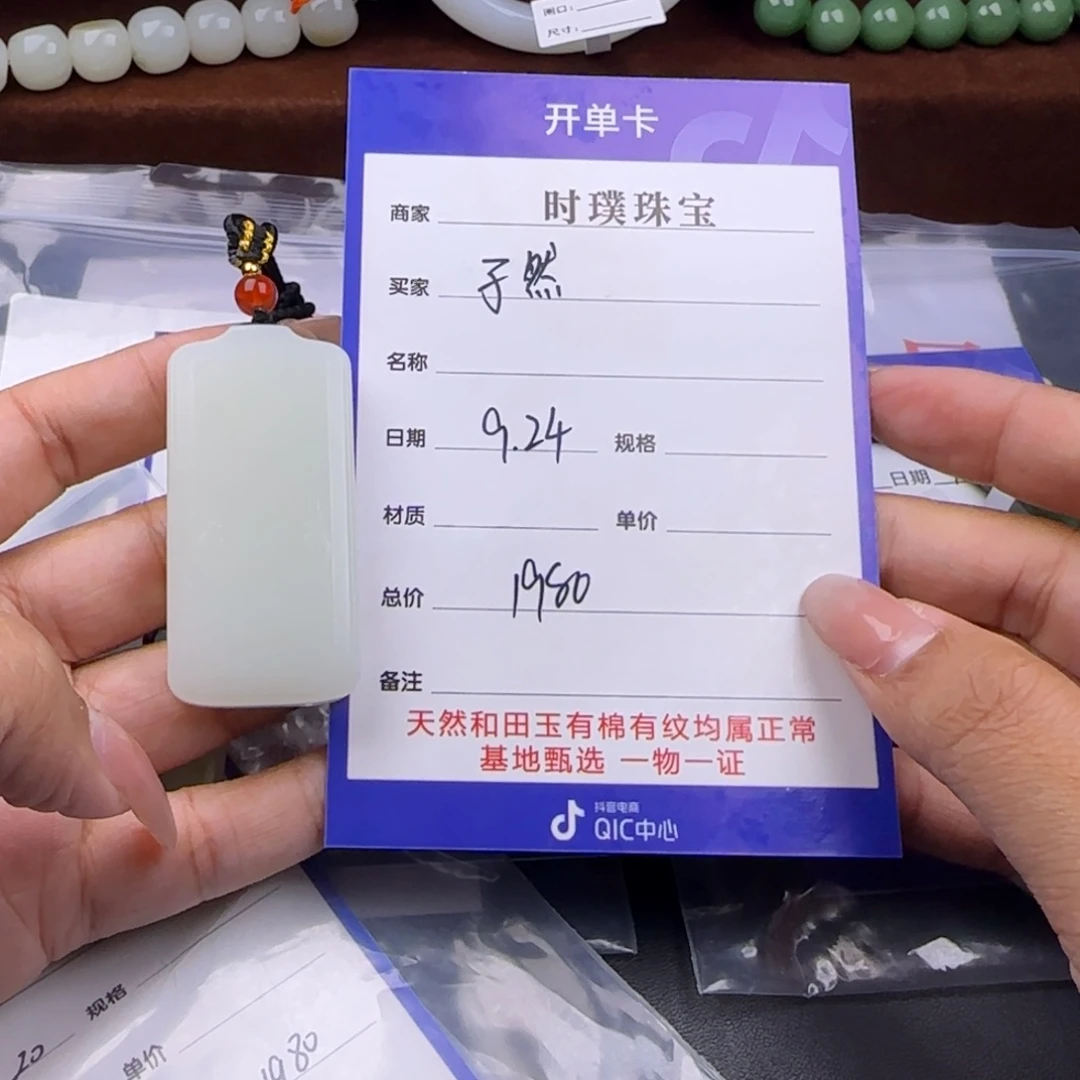 圈口:
尺寸:
开单卡
商家 时璞珠宝
买家 孑然
名称
日期 9.24 规格
材质 单价
总价 1980
备注
天然和田玉有棉有纹均属正常
基地甄选 一物一证
抖音电商
QIC中心
日期
规格
单价
1980